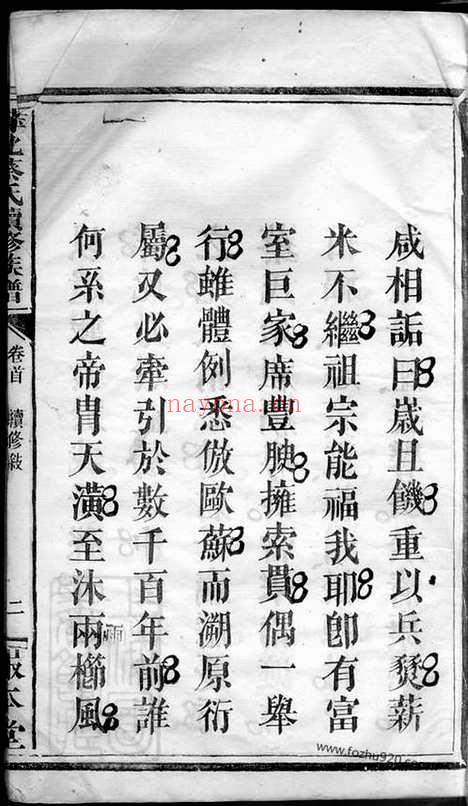 咸相詬曰歲且饑重以兵燹薪
米不繼祖宗能福我耶卽有富
室巨家席豐腴擁索貫偶一舉
行雖體例悉倣歐蘇而溯原衍
屬又必牽引於數千百年前誰
何系之帝胄天潢至沐雨櫛風
雨
蔡氏續修族譜
卷首
續修敘
二
本堂
nayona.cn
www.fozhu920.com